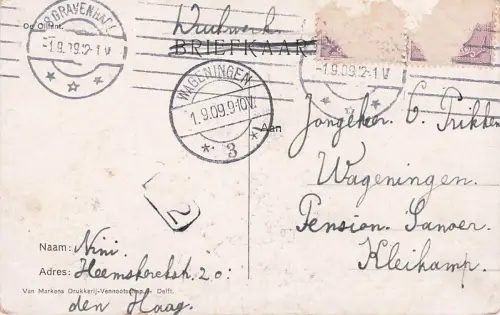 'S GRAVENHAGE
-1.9.09.12-1 V
Drukwerk
BRIEFKAART
-1.9.09.12-1 V
WAGENINGEN
1.9.09.9-10V.
3
Aan
Jongeheer C. Prikken
Wageningen.
Pension. Sanoer.
Kleikamp.
2
Naam: Nini.
Adres: Heemskerckstr. 20:
den Haag.
Van Markens Drukkerij-Vennootschap, Delft.